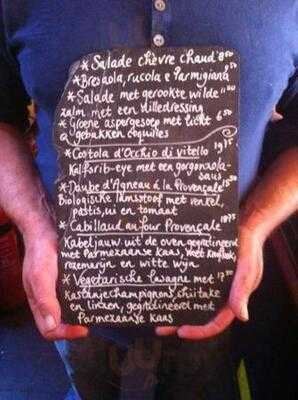 * Salade chèvre chaud 8⁵⁰
* Bresaola, rucola e Parmigiana
* Salade met gerookte wilde
zalm met een dilledressing
* Groene aspergesoep met licht 6⁵⁰
gebakken coquilles
* Costola d'Occhio di vitello 19⁷⁵
Kalfsrib-eye met een gorgonzola-
saus
* Daube d'Agneau à la Provençale 15⁵⁰
Biologische lamsstoof met venkel,
pastis, ui en tomaat
* Cabillaud au four Provençale
Kabeljauw uit de oven gegratineerd
met Parmezaanse kaas, knoflook,
rozemarijn en witte wijn
* Vegetarische lasagne met 17⁵⁰
Kastanjechampignons, shiitake
en linzen, gegratineerd met
Parmezaanse kaas